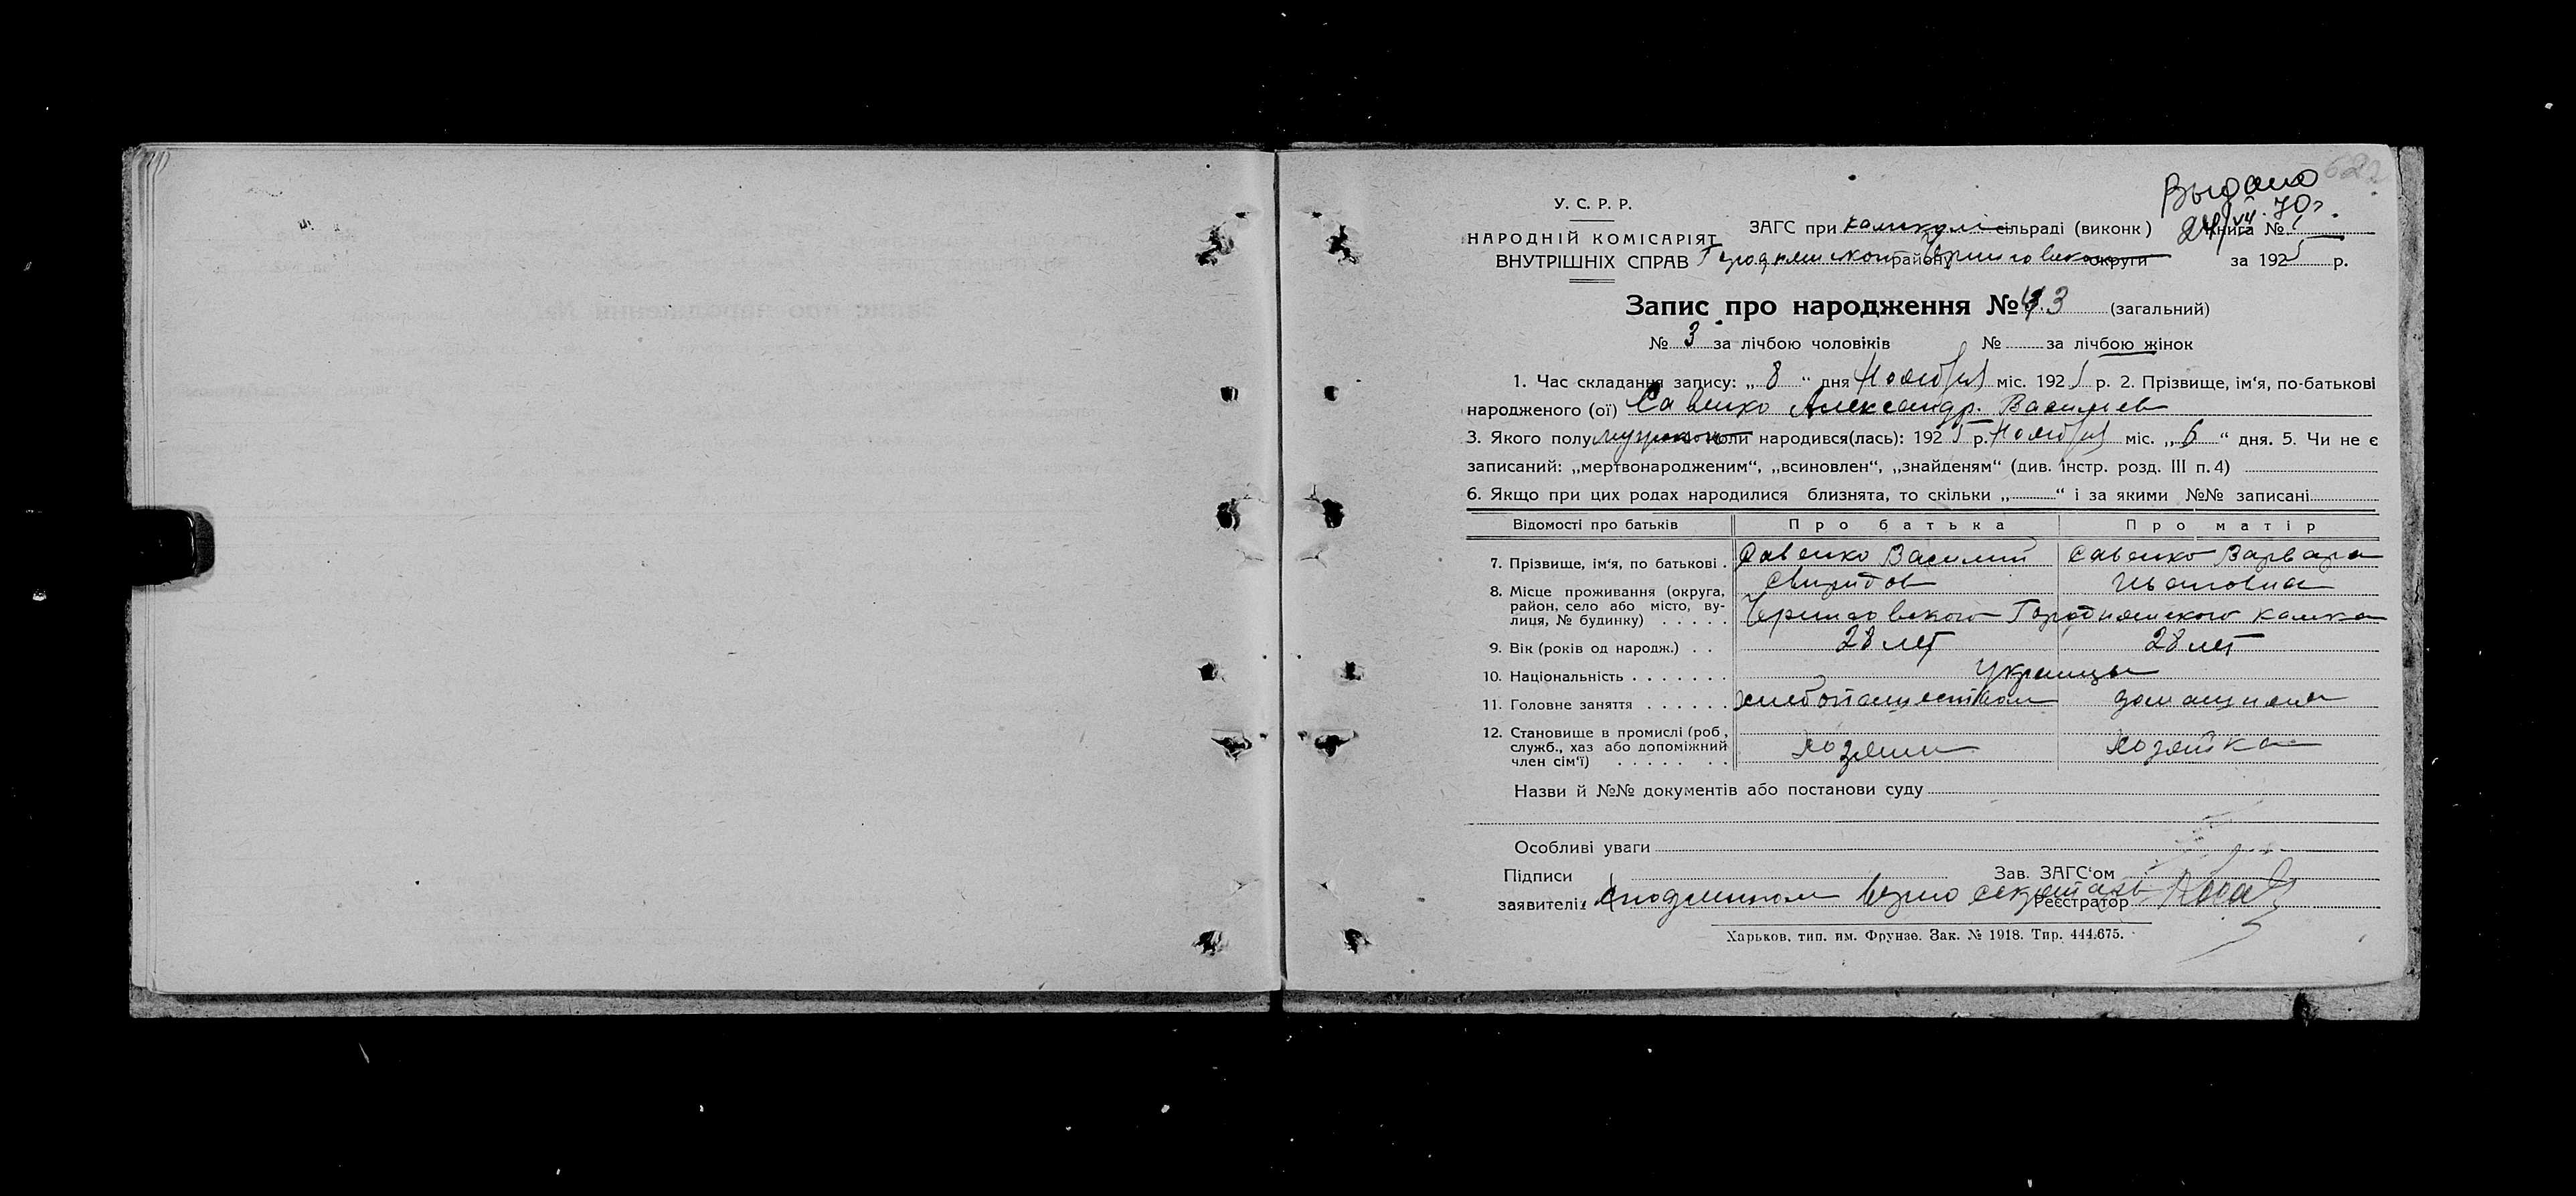 622
Выдано
24/VII 70г.
У. С. Р. Р.
НАРОДНІЙ КОМІСАРІЯТ
ВНУТРІШНІХ СПРАВ
ЗАГС при сільраді (виконк) Книга № 1
району округи за 1925 р.
Запис про народження № 43 (загальний)
№ 3 за лічбою чоловіків № за лічбою жінок
1. Час складання запису: „ 8 “ дня Ноября міс. 1925 р. 2. Прізвище, ім'я, по-батькові
народженого (ої) Савенко Александр. Васильев
3. Якого полу коли народився(лась): 1925 р. Ноября міс. „ 6 “ дня. 5. Чи не є
записаний: „мертвонародженим“, „всиновлен“, „знайденям“ (див. інстр. розд. III п. 4)
6. Якщо при цих родах народилися близнята, то скільки „ “ і за якими №№ записані
Відомості про батьків Про батька Про матір
7. Прізвище, ім'я, по батькові . Савенко Василий Савенко Варвара
Свиридов Ивановна
8. Місце проживання (округа,
район, село або місто, ву-
лиця, № будинку) . . . . . Черниговского Городнянского Камка
9. Вік (років од народж.) . . 28 лет 28 лет
10. Національність . . . . . . . Украинцы
11. Головне заняття . . . . . . хлебопашеством домашняя
12. Становище в промислі (роб.,
служб., хаз або допоміжний
член сім'ї) . . . . . . . хозяин хозяйка
Назви й №№ документів або постанови суду
Особливі уваги
Підписи Зав. ЗАГС'ом
заявителів С подлинном верно секретарь Реєстратор
Харьков, тип. им. Фрунзе. Зак. № 1918. Тир. 444.675.